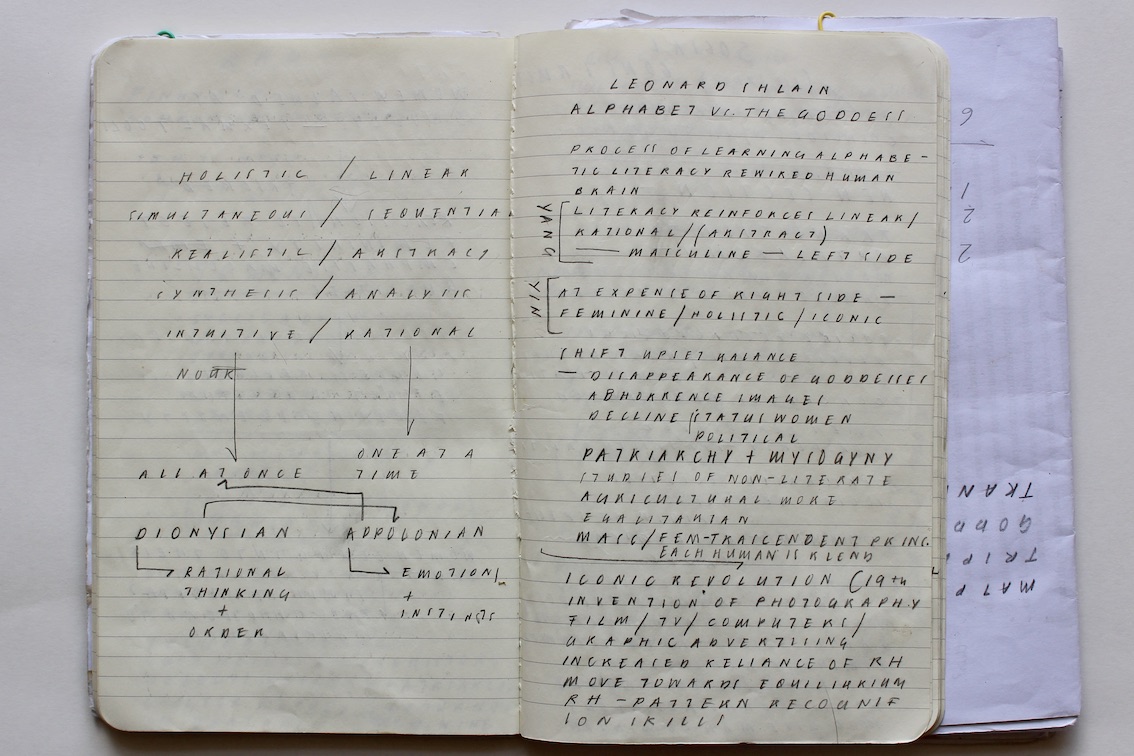 HOLISTIC / LINEAR
SIMULTANEOUS / SEQUENTIA
REALISTIC / ABSTRACT
SYNTHESIS / ANALYSIS
INTUITIVE / RATIONAL
ALL AT ONCE
ONE AT A
TIME
DIONYSIAN APPOLONIAN
RATIONAL
THINKING
+
ORDER
EMOTION
+
INSTINSTS
LEONARD SHLAIN
ALPHABET VS. THE GODDESS
PROCESS OF LEARNING ALPHABE-
TIC LITERACY REWIRED HUMAN
BRAIN
YANG
LITERACY REINFORCES LINEAR/
RATIONAL/(ABSTRACT)
— MASCULINE — LEFT SIDE
YIN
AT EXPENSE OF RIGHT SIDE —
FEMININE/HOLISTIC/ICONIC
SHIFT UPSET BALANCE
— DISAPPEARANCE OF GODDESSES
ABHORRENCE IMAGES
DECLINE STATUS WOMEN
POLITICAL
PATRIARCHY + MYSOGYNY
STUDIES OF NON-LITERATE
AGRICULTURAL MORE
EGALITARIAN
MASC/FEM-TRASCENDENT PRINC.
EACH HUMAN IS BLEND
ICONIC REVOLUTION (19TH
INVENTION OF PHOTOGRAPHY
FILM/TV/COMPUTERS/
GRAPHIC ADVERTISING
INCREASED RELIANCE OF RH
MOVE TOWARDS EQUILIBRIUM
RH - PATTERN RECOGNIT
ION SKILLS
6
1
2
2
TRAN
GODD
TRIP
MATR